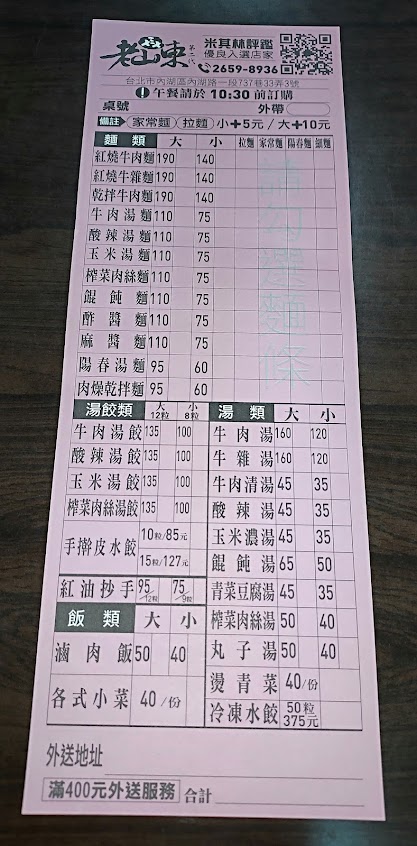 老山東 第二代
米其林評鑑
優良入選店家
2659-8936
台北市內湖區內湖路一段737巷33弄3號
午餐請於 10:30 前訂購
桌號 外帶
備註 家常麵 拉麵 小+5元/大+10元
麵類 大 小 拉麵 家常麵 陽春麵 細麵
紅燒牛肉麵 190 140
紅燒牛雜麵 190 140
乾拌牛肉麵 190 140
牛肉湯麵 110 75
酸辣湯麵 110 75
玉米湯麵 110 75
榨菜肉絲麵 110 75
餛飩麵 110 75
酢醬麵 110 75
麻醬麵 110 75
陽春湯麵 95 60
肉燥乾拌麵 95 60
請勾選麵條
湯餃類 大12粒 小8粒
牛肉湯餃 135 100
酸辣湯餃 135 100
玉米湯餃 135 100
榨菜肉絲湯餃 135 100
手擀皮水餃 10粒/85元
15粒/127元
紅油抄手 95/12粒 75/9粒
飯類 大 小
滷肉飯 50 40
各式小菜 40/份
湯類 大 小
牛肉湯 160 120
牛雜湯 160 120
牛肉清湯 45 35
酸辣湯 45 35
玉米濃湯 45 35
餛飩湯 65 50
青菜豆腐湯 45 35
榨菜肉絲湯 50 40
丸子湯 50 40
燙青菜 40/份
冷凍水餃 50粒
375元
外送地址
滿400元外送服務 合計